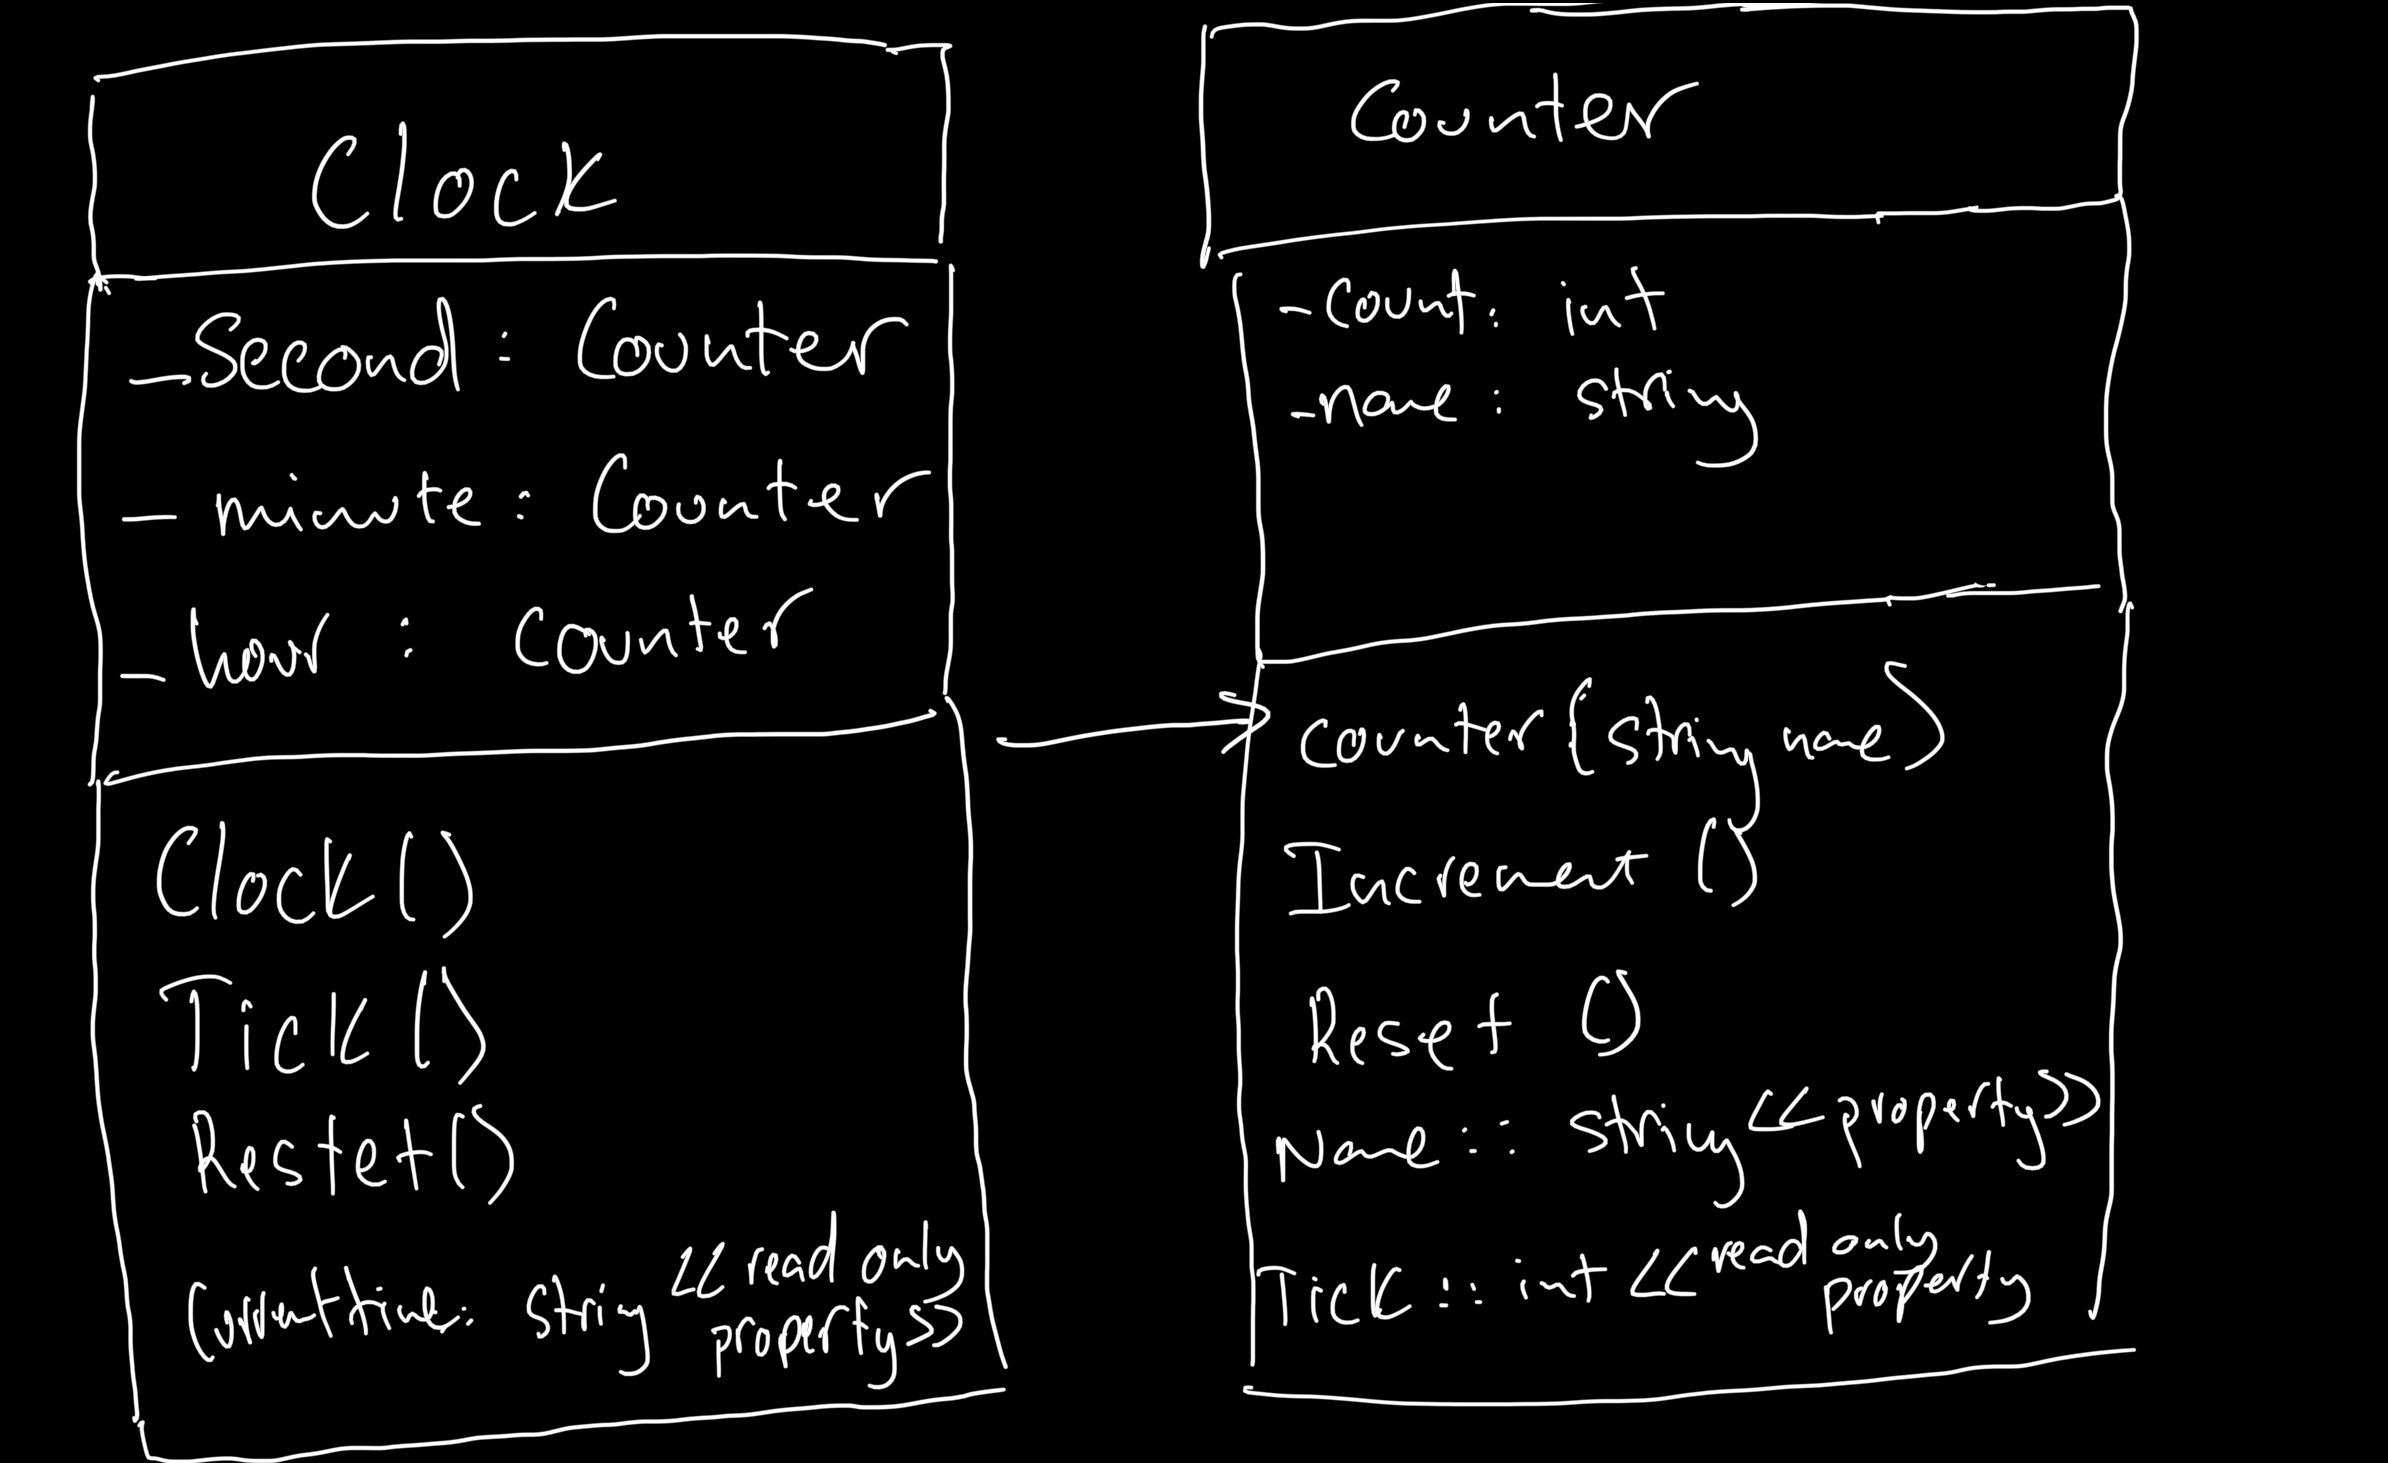 Clock
-Second : Counter
- minute : Counter
- hour : counter
Clock()
Tick()
Restet()
Currenttime: string << read only
property>>
Counter
-count: int
-name : string
counter(string name)
Increment ()
Reset ()
Name :: string << property>>
Tick :: int << read only
property